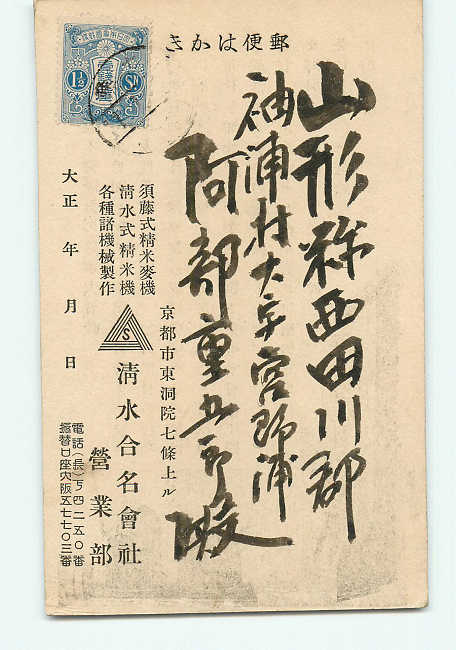 郵便はかき
山形縣西田川郡
袖浦村大字宮野浦
阿部重五郎殿
須藤式精米麥機
淸水式精米機
各種諸機械製作
大正 年 月 日
京都市東洞院七條上ル
S
淸水合名會社
營業部
電話(長)下四二五〇番
振替口座大阪五七七〇三番
1½ Sn